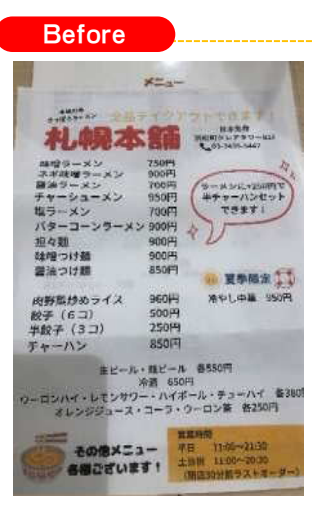 Before
メニュー
本場の味
さっぽろラーメン
全品テイクアウトできます!
札幌本舗
浜松町クレアタワーB1F
03-3435-5447
味噌ラーメン 750円
ネギ味噌ラーメン 900円
醤油ラーメン 700円
チャーシューメン 950円
塩ラーメン 700円
バターコーンラーメン 900円
担々麺 900円
味噌つけ麺 900円
醤油つけ麺 850円
ラーメンに+250円で
半チャーハンセット
できます!
夏季限定
冷やし中華 950円
肉野菜炒めライス 960円
餃子(6コ) 500円
半餃子(3コ) 250円
チャーハン 850円
生ビール・瓶ビール 各550円
冷酒 650円
ウーロンハイ・レモンサワー・ハイボール・チューハイ 各380円
オレンジジュース・コーラ・ウーロン茶 各250円
その他メニュー
各種ございます!
営業時間
平日 11:00~21:30
土日祝 11:00~20:30
(閉店30分前ラストオーダー)